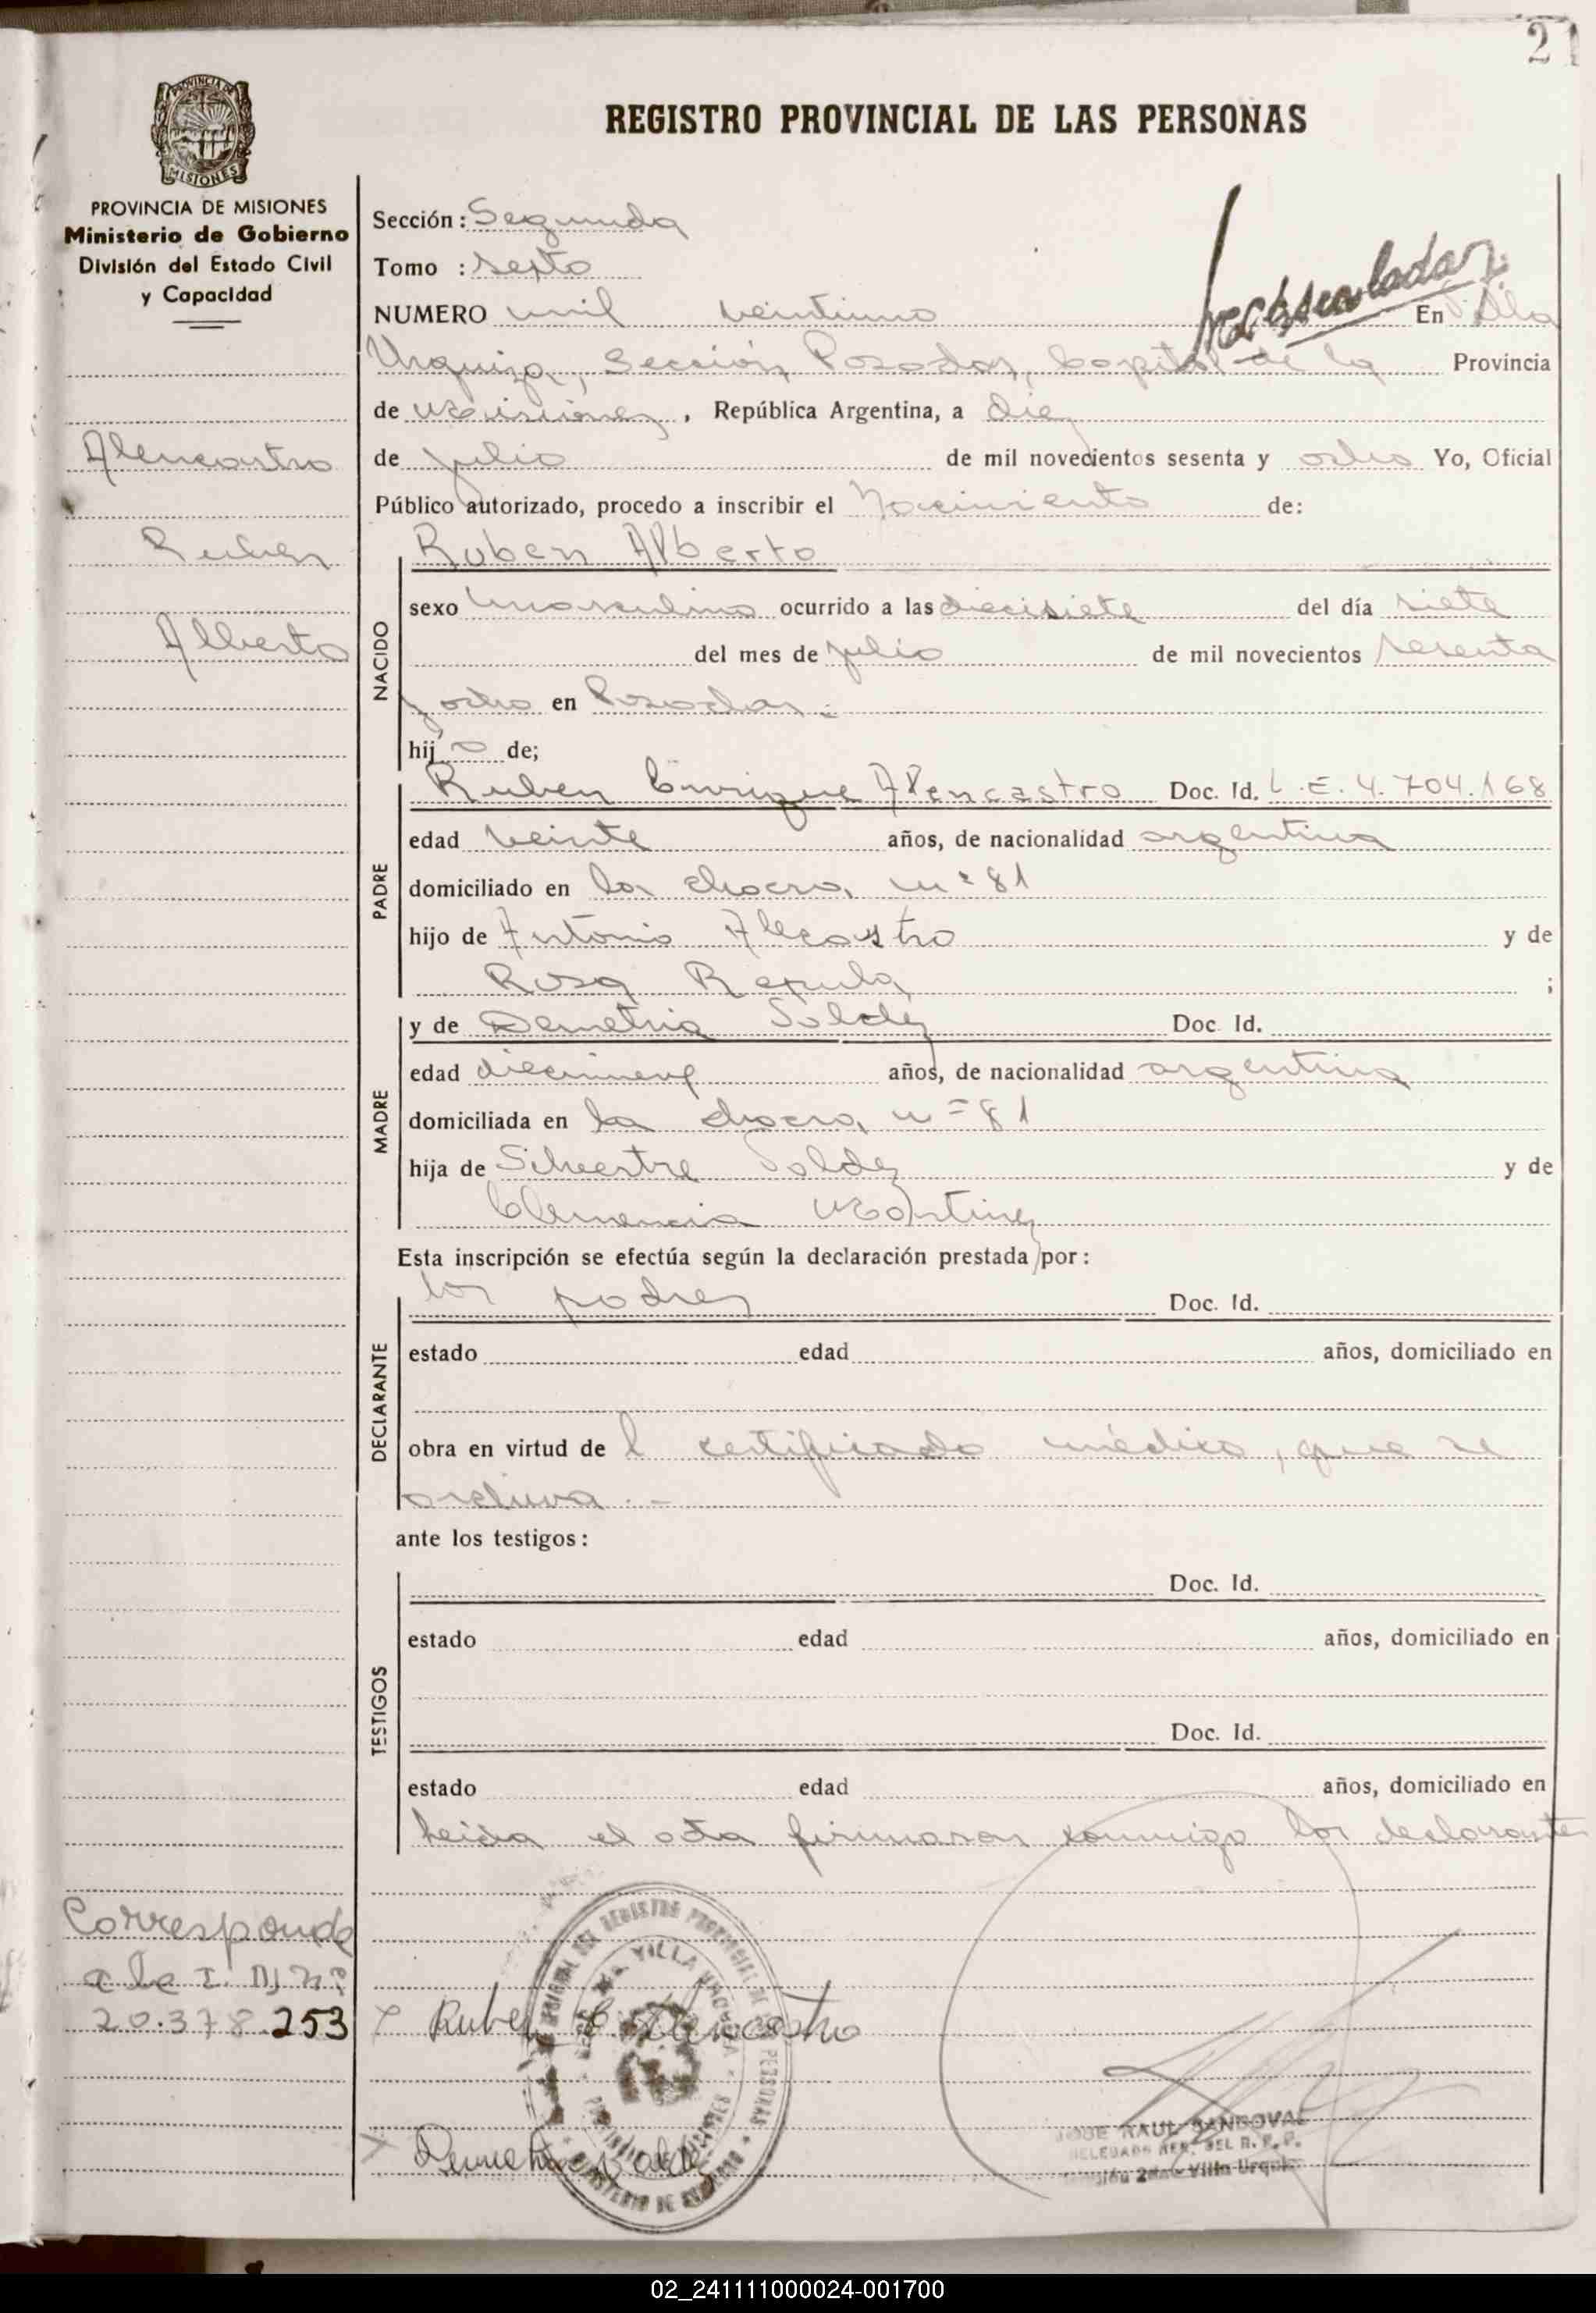 21
REGISTRO PROVINCIAL DE LAS PERSONAS
PROVINCIA DE MISIONES
PROVINCIA DE MISIONES
Ministerio de Gobierno
División del Estado Civil
y Capacidad
Sección: Segunda
Tomo : Sexto
NUMERO mil veintiuno En Villa
Urquiza, Sección Posadas, Capital de la Provincia
de Misiones, República Argentina, a diez
de julio de mil novecientos sesenta y ocho Yo, Oficial
Público autorizado, procedo a inscribir el Nacimiento de:
Alencastro
Ruben
Alberto
NACIDO
Ruben Alberto
sexo masculino ocurrido a las diecisiete del día siete
del mes de julio de mil novecientos sesenta
y ocho en Posadas.-
hij o de;
PADRE
Ruben Enrique Alencastro Doc. Id. L.E. 4.704.168
edad veinte años, de nacionalidad argentina
domiciliado en la chacra nº 81
hijo de Antonio Alecastro y de
Rosa ;
MADRE
y de Demetria Doc. Id.
edad diecinueve años, de nacionalidad argentina
domiciliada en la chacra nº 81
hija de Silvestre y de
Clemencia Martinez
Esta inscripción se efectúa según la declaración prestada por:
DECLARANTE
los padres Doc. Id.
estado edad años, domiciliado en
obra en virtud de l certificado médico, que se
archiva.-
ante los testigos:
TESTIGOS
Doc. Id.
estado edad años, domiciliado en
Doc. Id.
estado edad años, domiciliado en
Leida el acta firmaron conmigo los declarantes
Corresponde
a la I. D. Nº
20.378.253
Ruben E. Alencastro
JOSE RAUL SANDOVAL
DELEGADO DEL R. P. P.
Sección 2da - Villa Urquiza
02_241111000024-001700